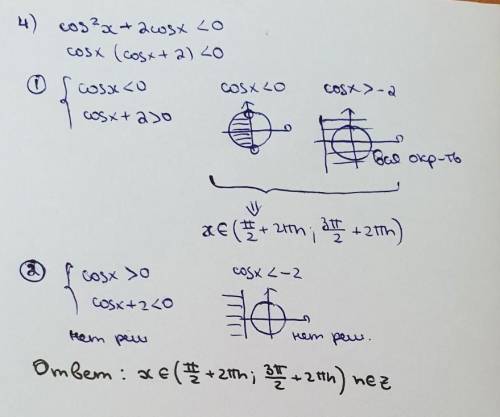 4) cos²x + 2cosx < 0
cosx (cosx + 2) < 0
① { cosx < 0
cosx + 2 > 0
cosx < 0
cosx > -2
вся окр-ть
⇓
x∈(π/2 + 2πn ; 3π/2 + 2πn)
② { cosx > 0
cosx + 2 < 0
нет реш
cosx < -2
нет реш.
Ответ : x∈(π/2 + 2πn ; 3π/2 + 2πn) n∈z